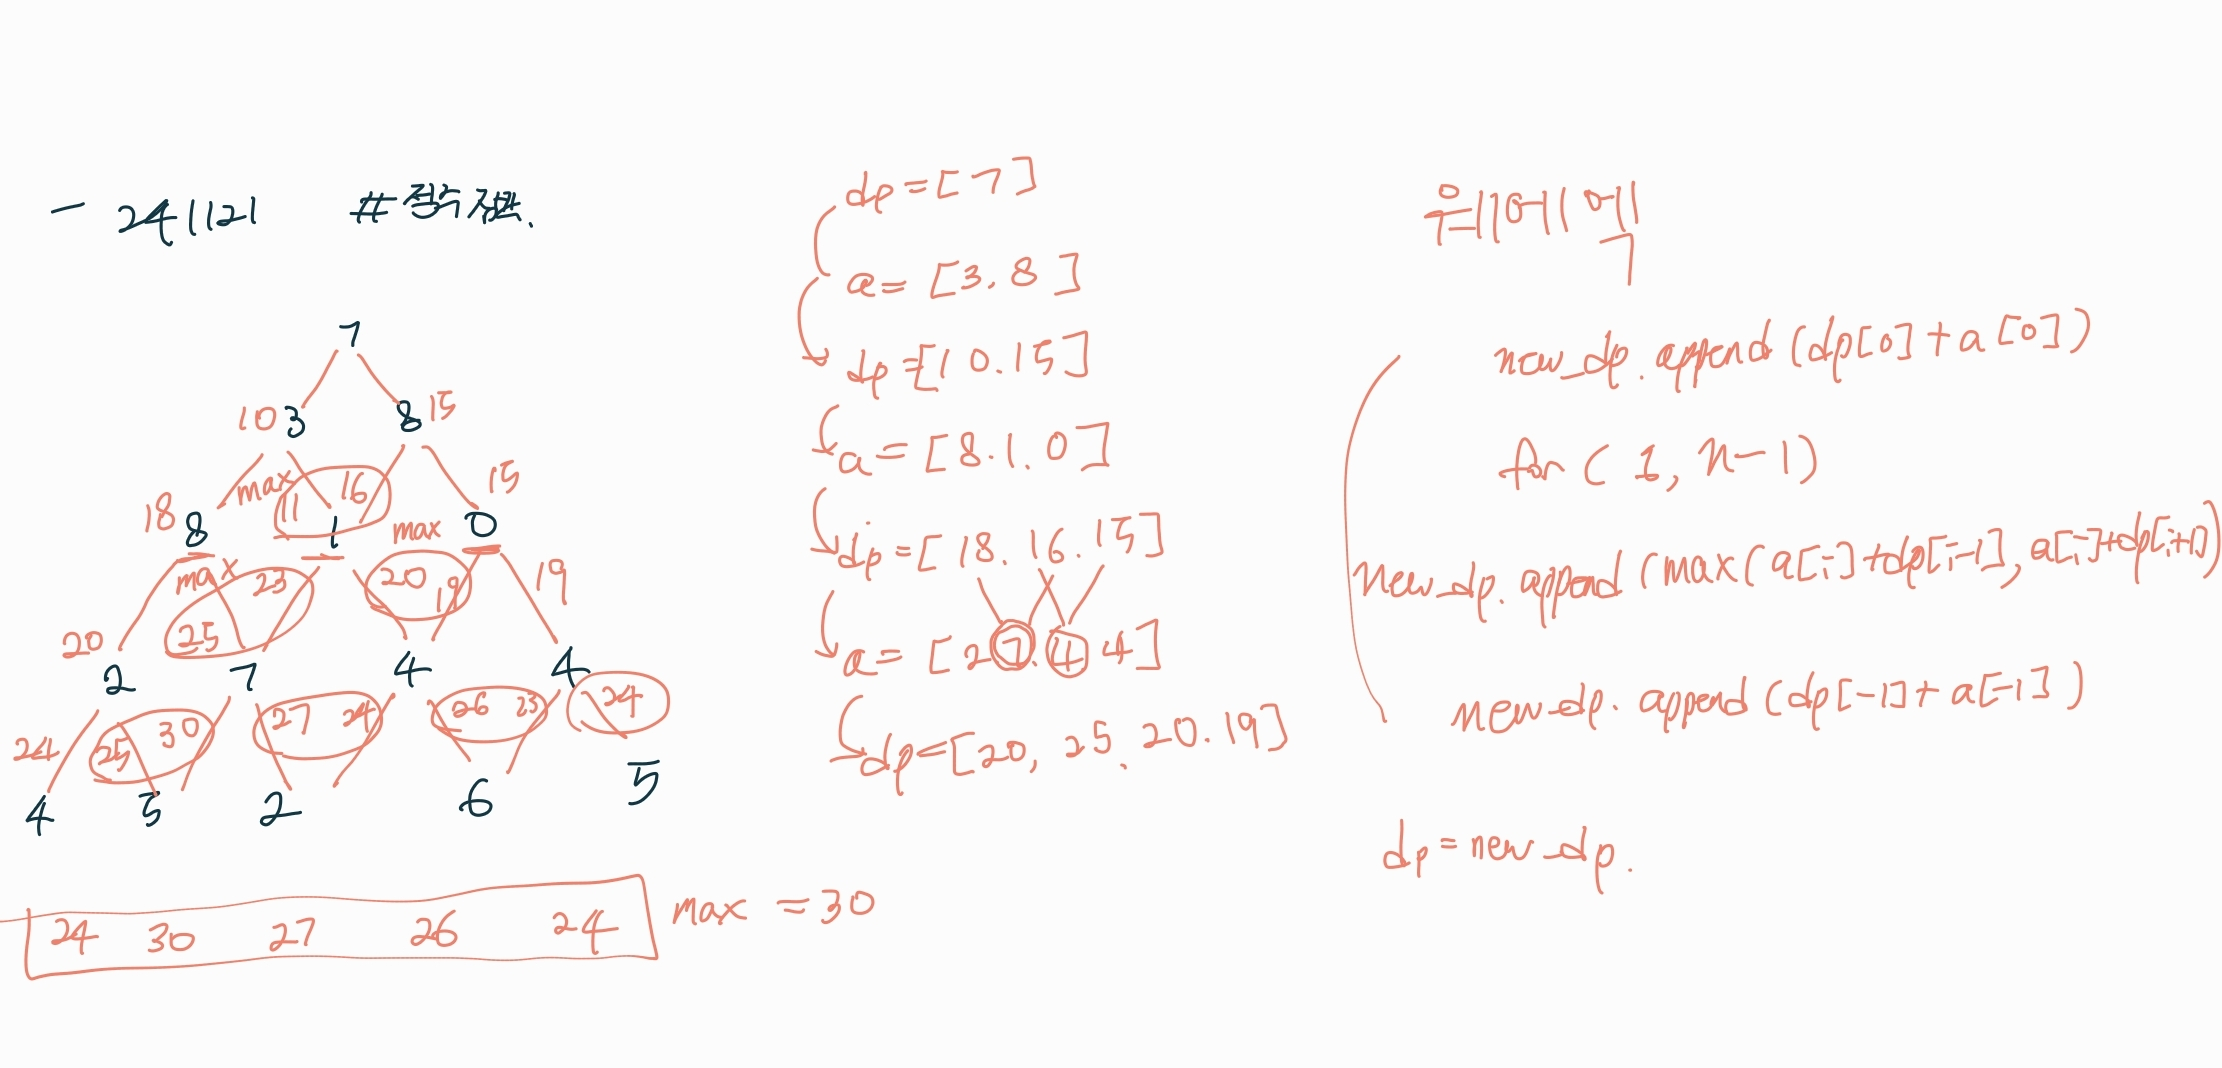 - 241121 #정수 삼각형.
7
10 3 8 15
max 11 16 15
18 8 1 max 0
max 23 20 19 19
20 25
2 7 4 4
24 25 30 27 24 26 23 24
4 5 2 6 5
24 30 27 26 24 max = 30
dp = [7]
a = [3. 8]
dp = [10. 15]
a = [8. 1. 0]
dp = [18. 16. 15]
a = [2 7. 4 4]
dp = [20, 25. 20. 19]
new_dp. append (dp[0] + a[0])
for ( 1, n-1)
new_dp. append (max(a[i]+dp[i-1], a[i]+dp[i+1])
new_dp. append (dp[-1] + a[-1])
dp = new_dp.